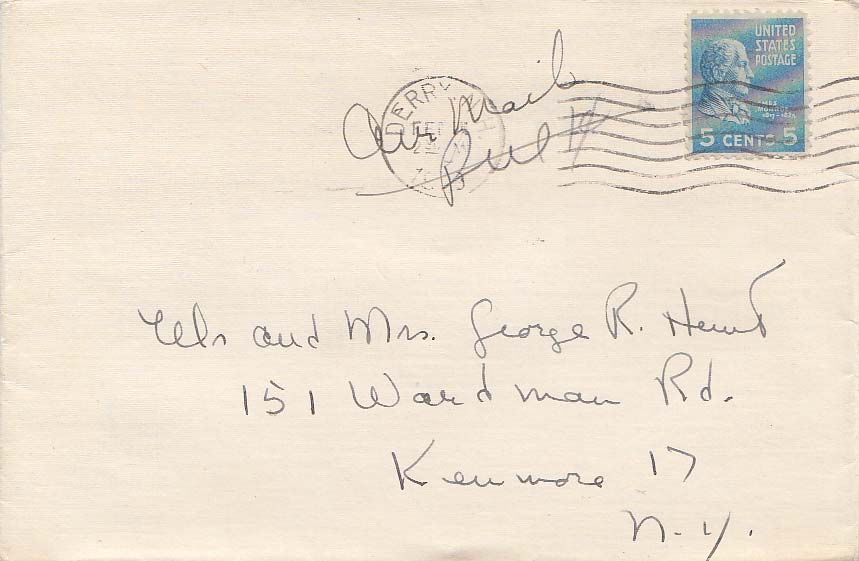 UNITED
STATES
POSTAGE
JAMES
MONROE
1817-1825
5 CENTS 5
Air Mail
DERRY
Mr and Mrs. George R. Hunt
151 Wardman Rd.
Kenmore 17
N.Y.